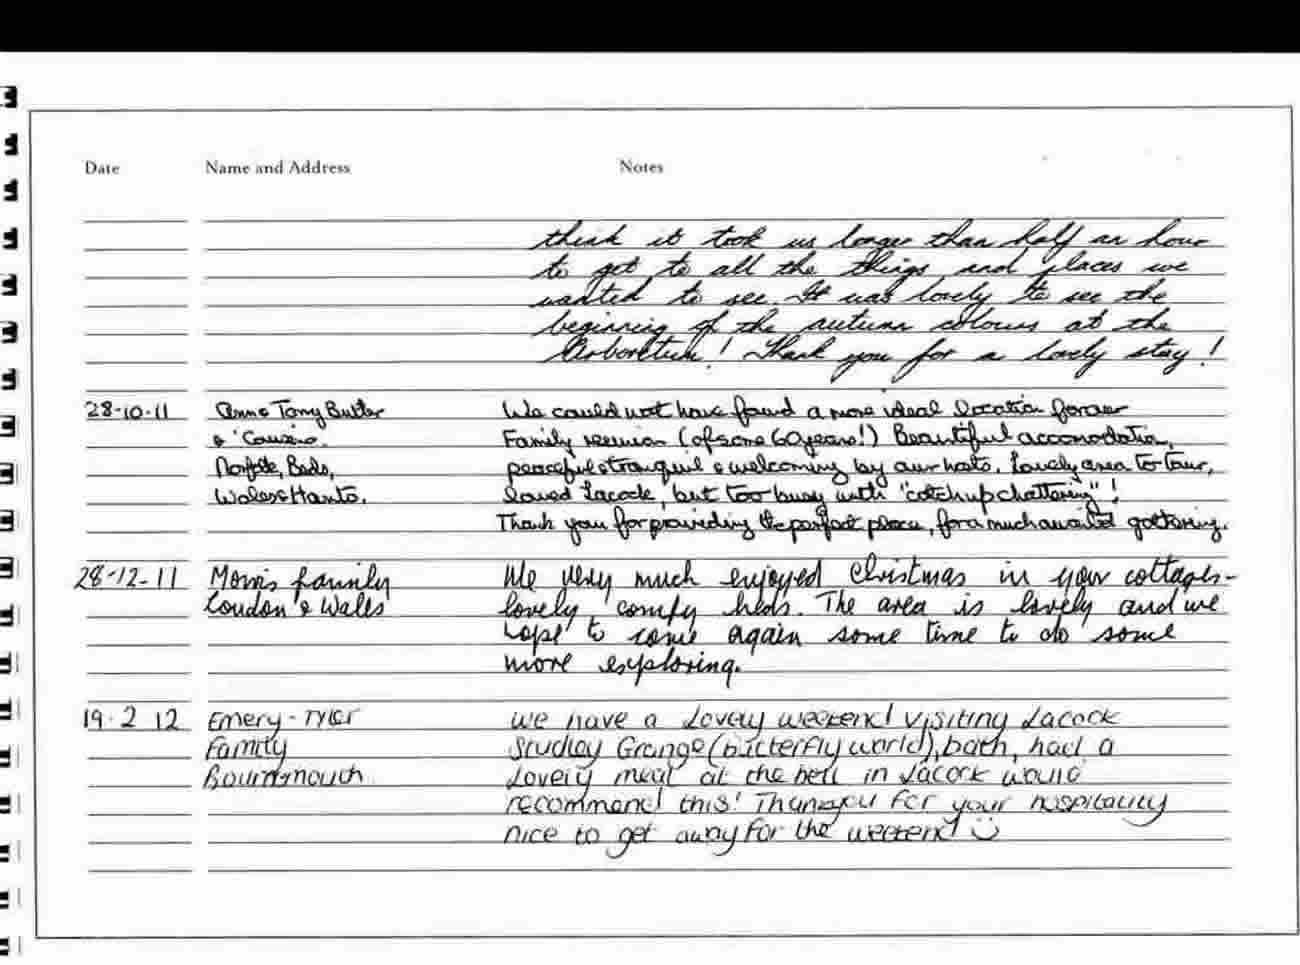 Date Name and Address Notes
think it took us longer than half an hour
to get to all the things and places we
wanted to see. It was lovely to see the
beginning of the autumn colours at the
Arboretum! Thank you for a lovely stay!
28-10-11 Anne Tony Butler We could not have found a more ideal location for our
& 'Cousins. Family reunion (of some 60 years!) Beautiful accomodation,
Norfolk, Beds, peaceful & tranquil & welcoming by our hosts. Lovely area to tour,
Wales & Hants. loved Lacock, but too busy with "catch up chattering"!
Thank you for providing the perfect place, for a much awaited gathering.
28-12-11 Morris family We very much enjoyed Christmas in your cottages-
London & Wales lovely comfy beds. The area is lovely and we
hope to come again some time to do some
more exploring.
19.2 12 Emery-Tyler we have a lovely weekend visiting Lacock
Family Studley Grange (butterfly world), bath, had a
Bournmouth Lovely meal at the bell in Lacock would
recommend this! Thankyou for your hospitality
nice to get away for the weekend